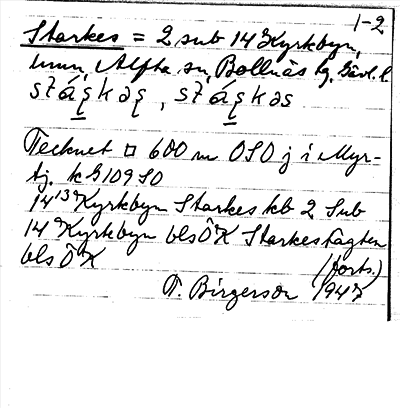 1-2
Starkes = 2 sub 14 Kyrkbyn,
unn, Alfta sn, Bollnäs tg. Gävl. l.
Tecknet □ 600 m OSO j i Myr-
tj. kG109SO
14¹³ Kyrkbyn Starkes kb 2 Sub
14 Kyrkbyn blsÖK Starkestägten
bls ÖK
(forts.)
T. Birgerson 1947